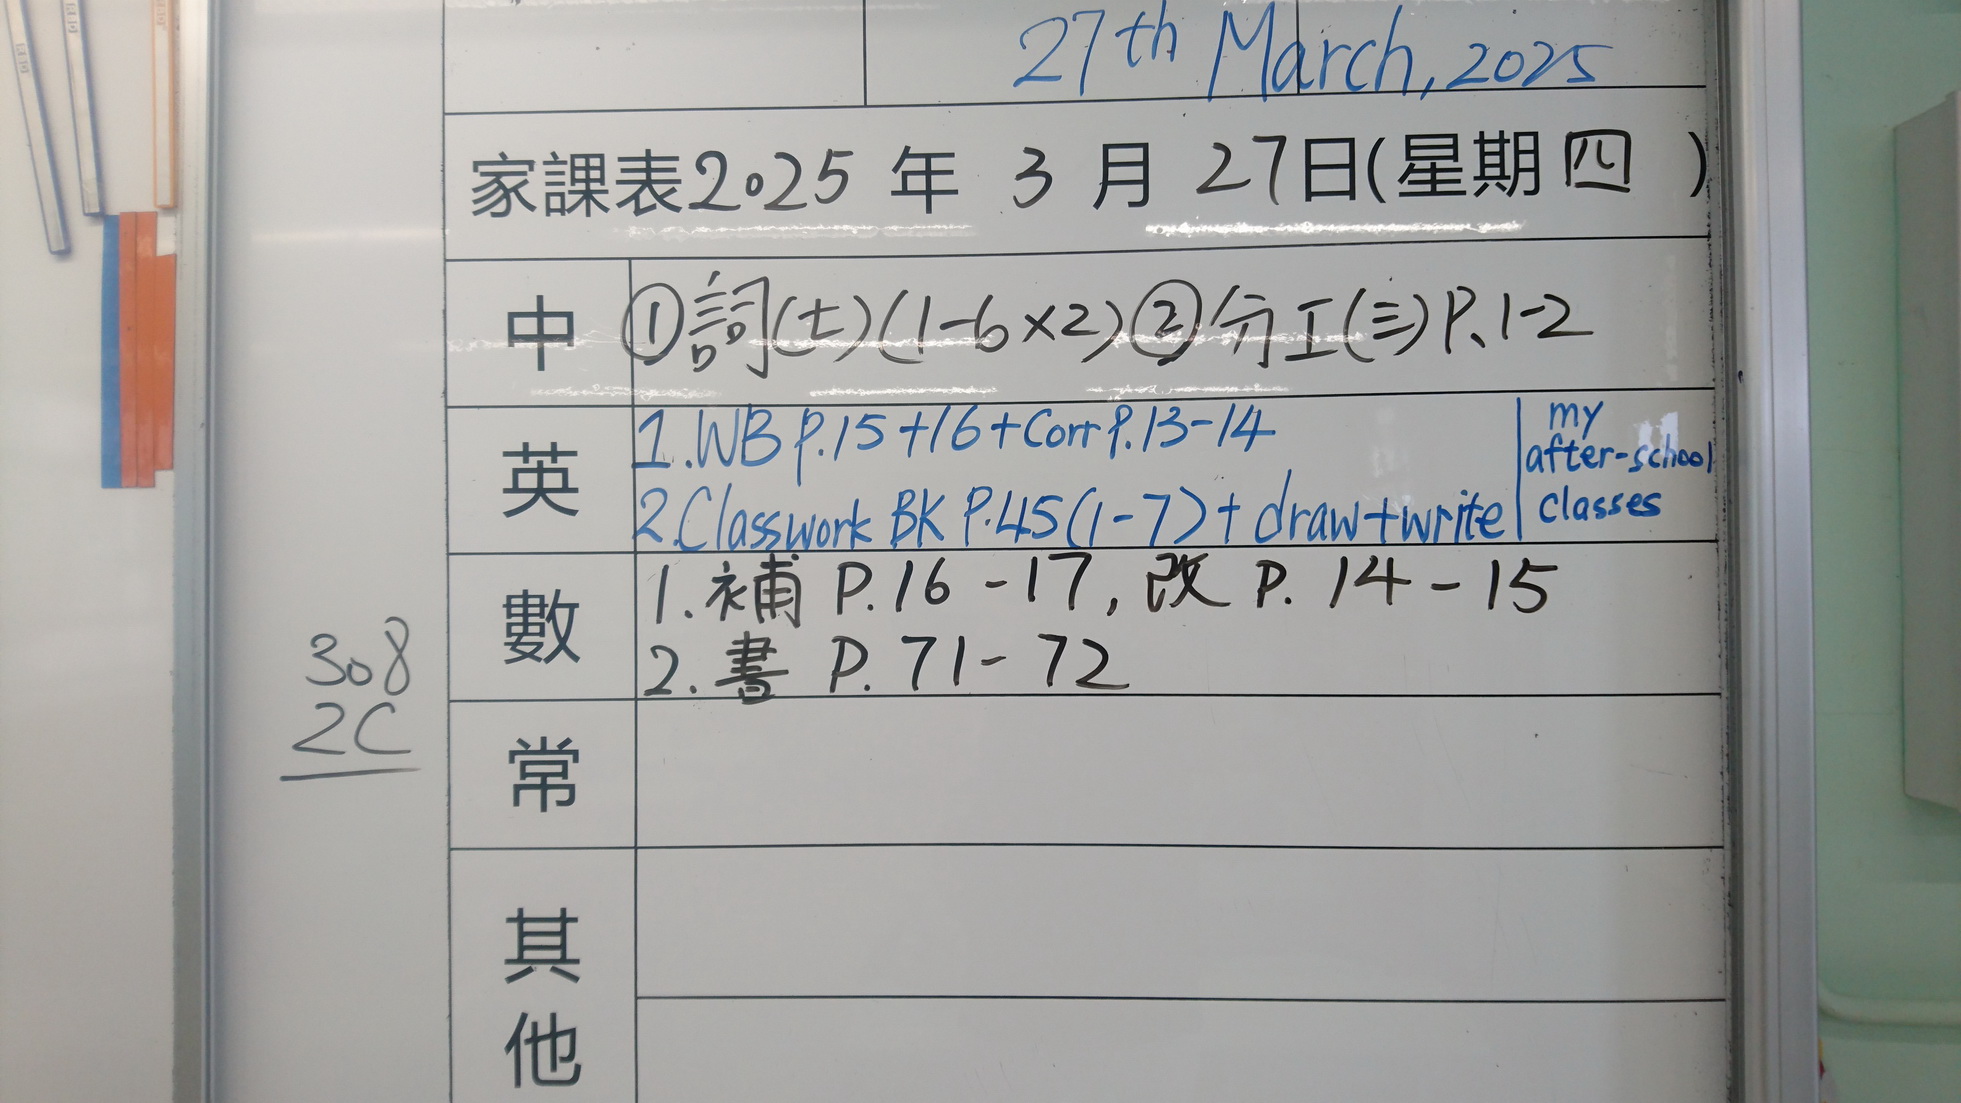 27th March, 2025
家課表2025 年 3 月 27日(星期四 )
中 ①詞(十一)(1-6×2)②分工(三)P.1-2
英 1.WB P.15+16+Corr P.13-14
2.Classwork BK P.45(1-7)+draw+write
my
after-school
classes
數 1.補 P.16-17,改 P.14-15
2.書 P.71-72
308
2C
常
其
他